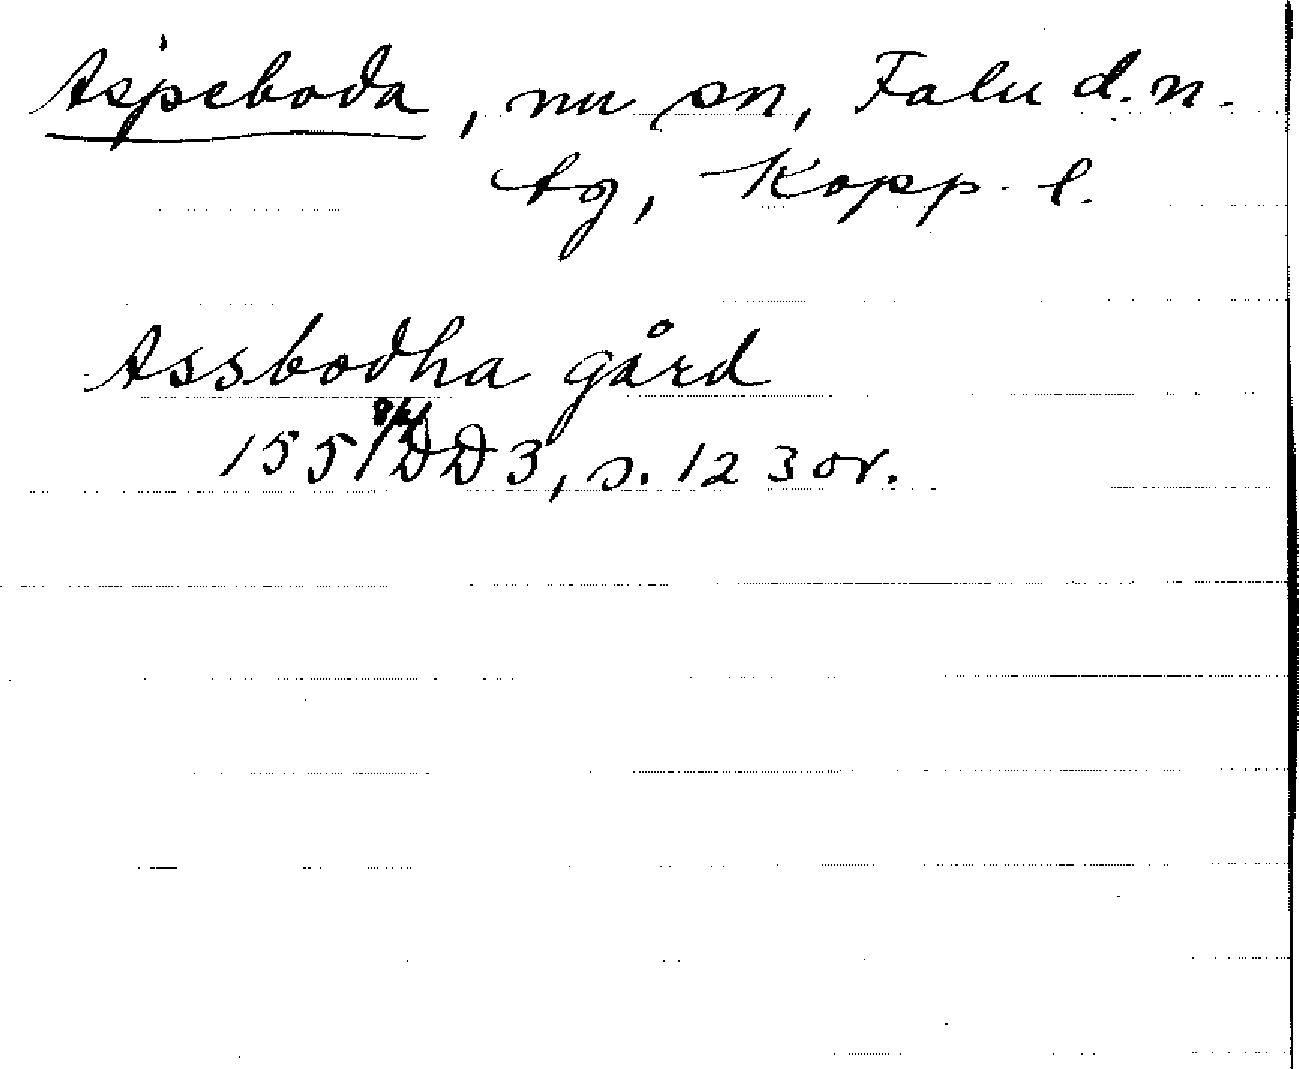 Aspeboda, nu sn, Falu d.n.
tg, Kopp. l.
Assbodha gård
1551 DD 3, s. 123 or.